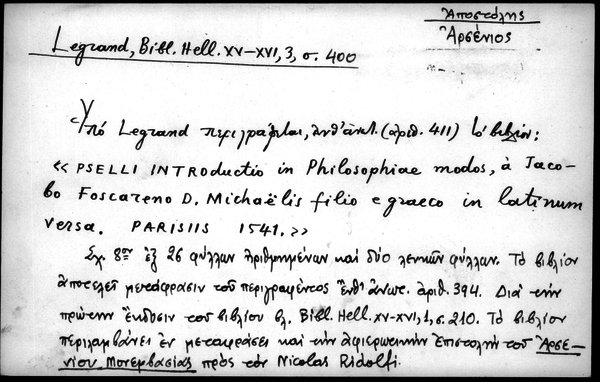 Ἀποστόλης
Ἀρσένιος
Legrand, Bibl. Hell. XV-XVI, 3, σ. 400
Ὑπό Legrand περιγράφεται, (ἀριθ. 411) τό βιβλίον:
« PSELLI INTRODUCTIO in Philosophiae modos, à Jaco-
bo Foscareno D. Michaëlis filio e graeco in latinum
versa. PARISIIS 1541. »
Σχ. 8ον ἐξ 26 φύλλων ἀριθμημένων καί δύο λευκῶν φύλλων. Τό βιβλίον
ἀποτελεῖ μετάφρασιν τοῦ περιγραφέντος ἀνωτ. ἀριθ. 394. Διά τήν
πρώτην ἔκδοσιν τοῦ βιβλίου βλ. Bibl. Hell. XV-XVI, 1, σ. 210. Τό βιβλίον
περιλαμβάνει ἐν μεταφράσει καί τήν ἀφιερωτικήν ἐπιστολήν τοῦ Ἀρσε-
νίου Μονεμβασίας πρός τόν Nicolas Ridolfi.